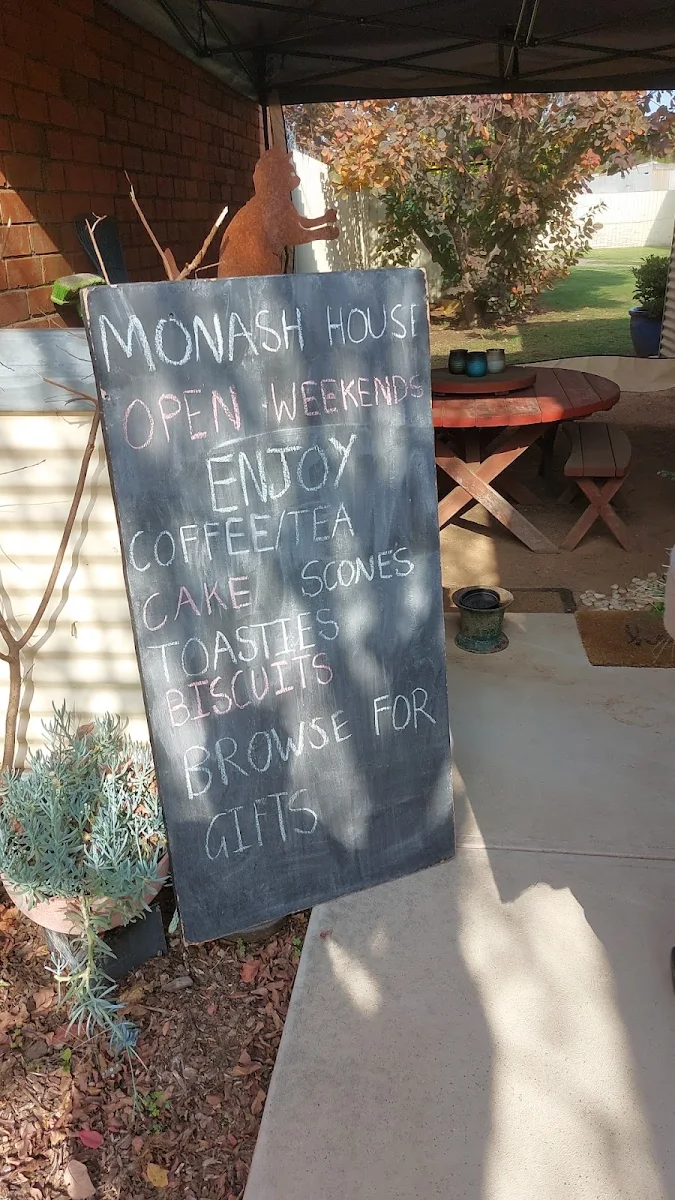 MONASH HOUSE
OPEN WEEKENDS
ENJOY
COFFEE/TEA
CAKE SCONES
TOASTIES
BISCUITS
BROWSE FOR
GIFTS